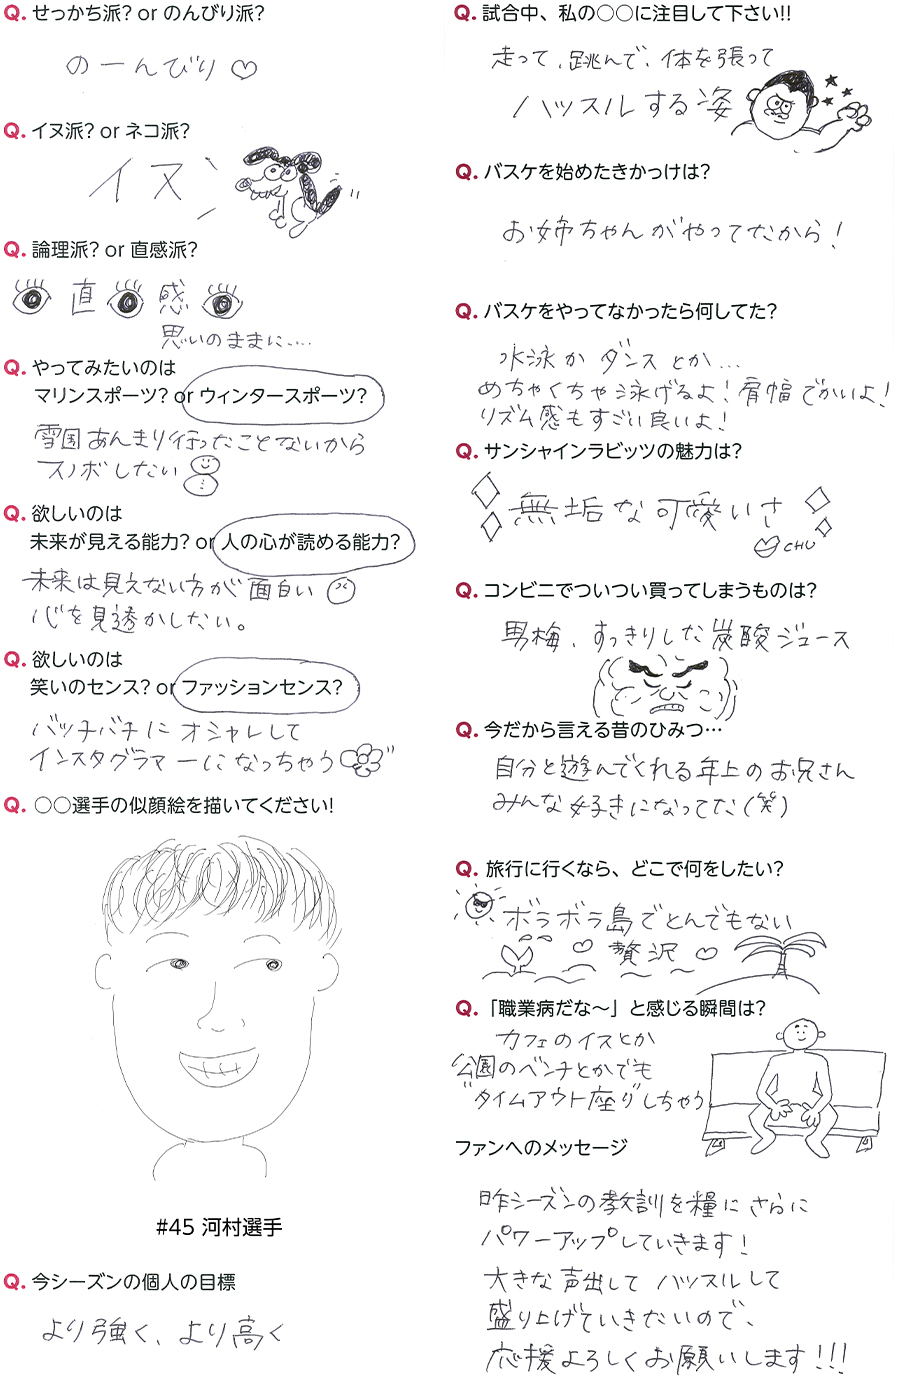 Q. せっかち派? or のんびり派?
のーんびり♡
Q. イヌ派? or ネコ派?
イヌ
Q. 論理派? or 直感派?
直感
思いのままに....
Q. やってみたいのは
マリンスポーツ? or ウィンタースポーツ?
雪国あんまり行ったことないから
スノボしたい
Q. 欲しいのは
未来が見える能力? or 人の心が読める能力?
未来は見えない方が面白い
心を見透かしたい。
Q. 欲しいのは
笑いのセンス? or ファッションセンス?
バッチバチにオシャレして
インスタグラマーになっちゃう
Q. ○○選手の似顔絵を描いてください!
#45 河村選手
Q. 今シーズンの個人の目標
より強く、より高く
Q. 試合中、私の○○に注目して下さい!!
走って、跳んで、体を張って
ハッスルする姿
Q. バスケを始めたきかっけは?
お姉ちゃんがやってたから!
Q. バスケをやってなかったら何してた?
水泳かダンスとか...
めちゃくちゃ泳げるよ!肩幅でかいよ!
リズム感もすごい良いよ!
Q. サンシャインラビッツの魅力は?
無垢な可愛いさ
CHU
Q. コンビニでついつい買ってしまうものは?
男梅、すっきりした炭酸ジュース
Q. 今だから言える昔のひみつ…
自分と遊んでくれる年上のお兄さん
みんな好きになってた(笑)
Q. 旅行に行くなら、どこで何をしたい?
ボラボラ島でとんでもない
♡ 贅沢 ♡
Q. 「職業病だな〜」と感じる瞬間は?
カフェのイスとか
公園のベンチとかでも
タイムアウト座りしちゃう
ファンへのメッセージ
昨シーズンの教訓を糧にさらに
パワーアップしていきます!
大きな声出してハッスルして
盛り上げていきたいので、
応援よろしくお願いします!!!